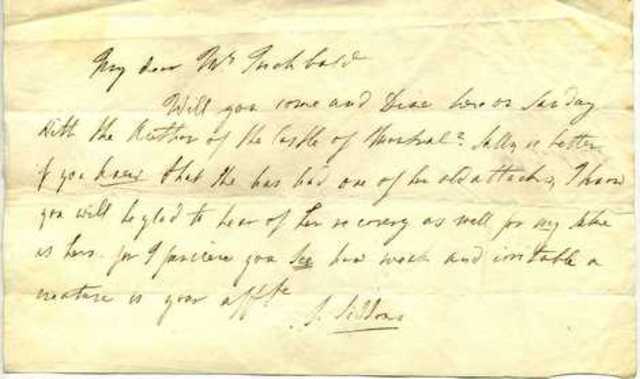 My dear Mrs Inchbald
Will you come and Dine here on Sunday
With the Author of the Castle of Montval? Sally is better
if you knew that she has had one of her old attacks, I know
you will be glad to hear of her recovery as well for my sake
as hers. for I you See how weak and irritable a
creature is your affte
S. Siddons